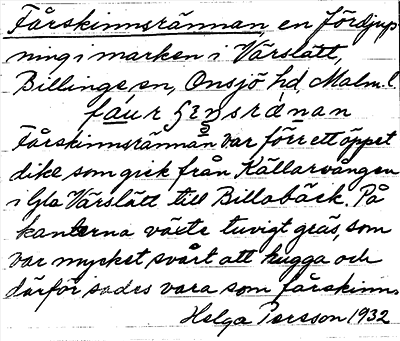 Fårskinnsrännan, en fördjup-
ning i marken i Värslätt,
Billinge sn, Onsjö hd, Malm. l.
Fårskinnsrännan var förr ett öppet
dike som gick från Källarvången
i Gla Värslätt till Billabäck. På
kanterna växte tuvigt gräs, som
var mycket svårt att hugga och
därför sades vara som fårskinn.
Helga Persson 1932